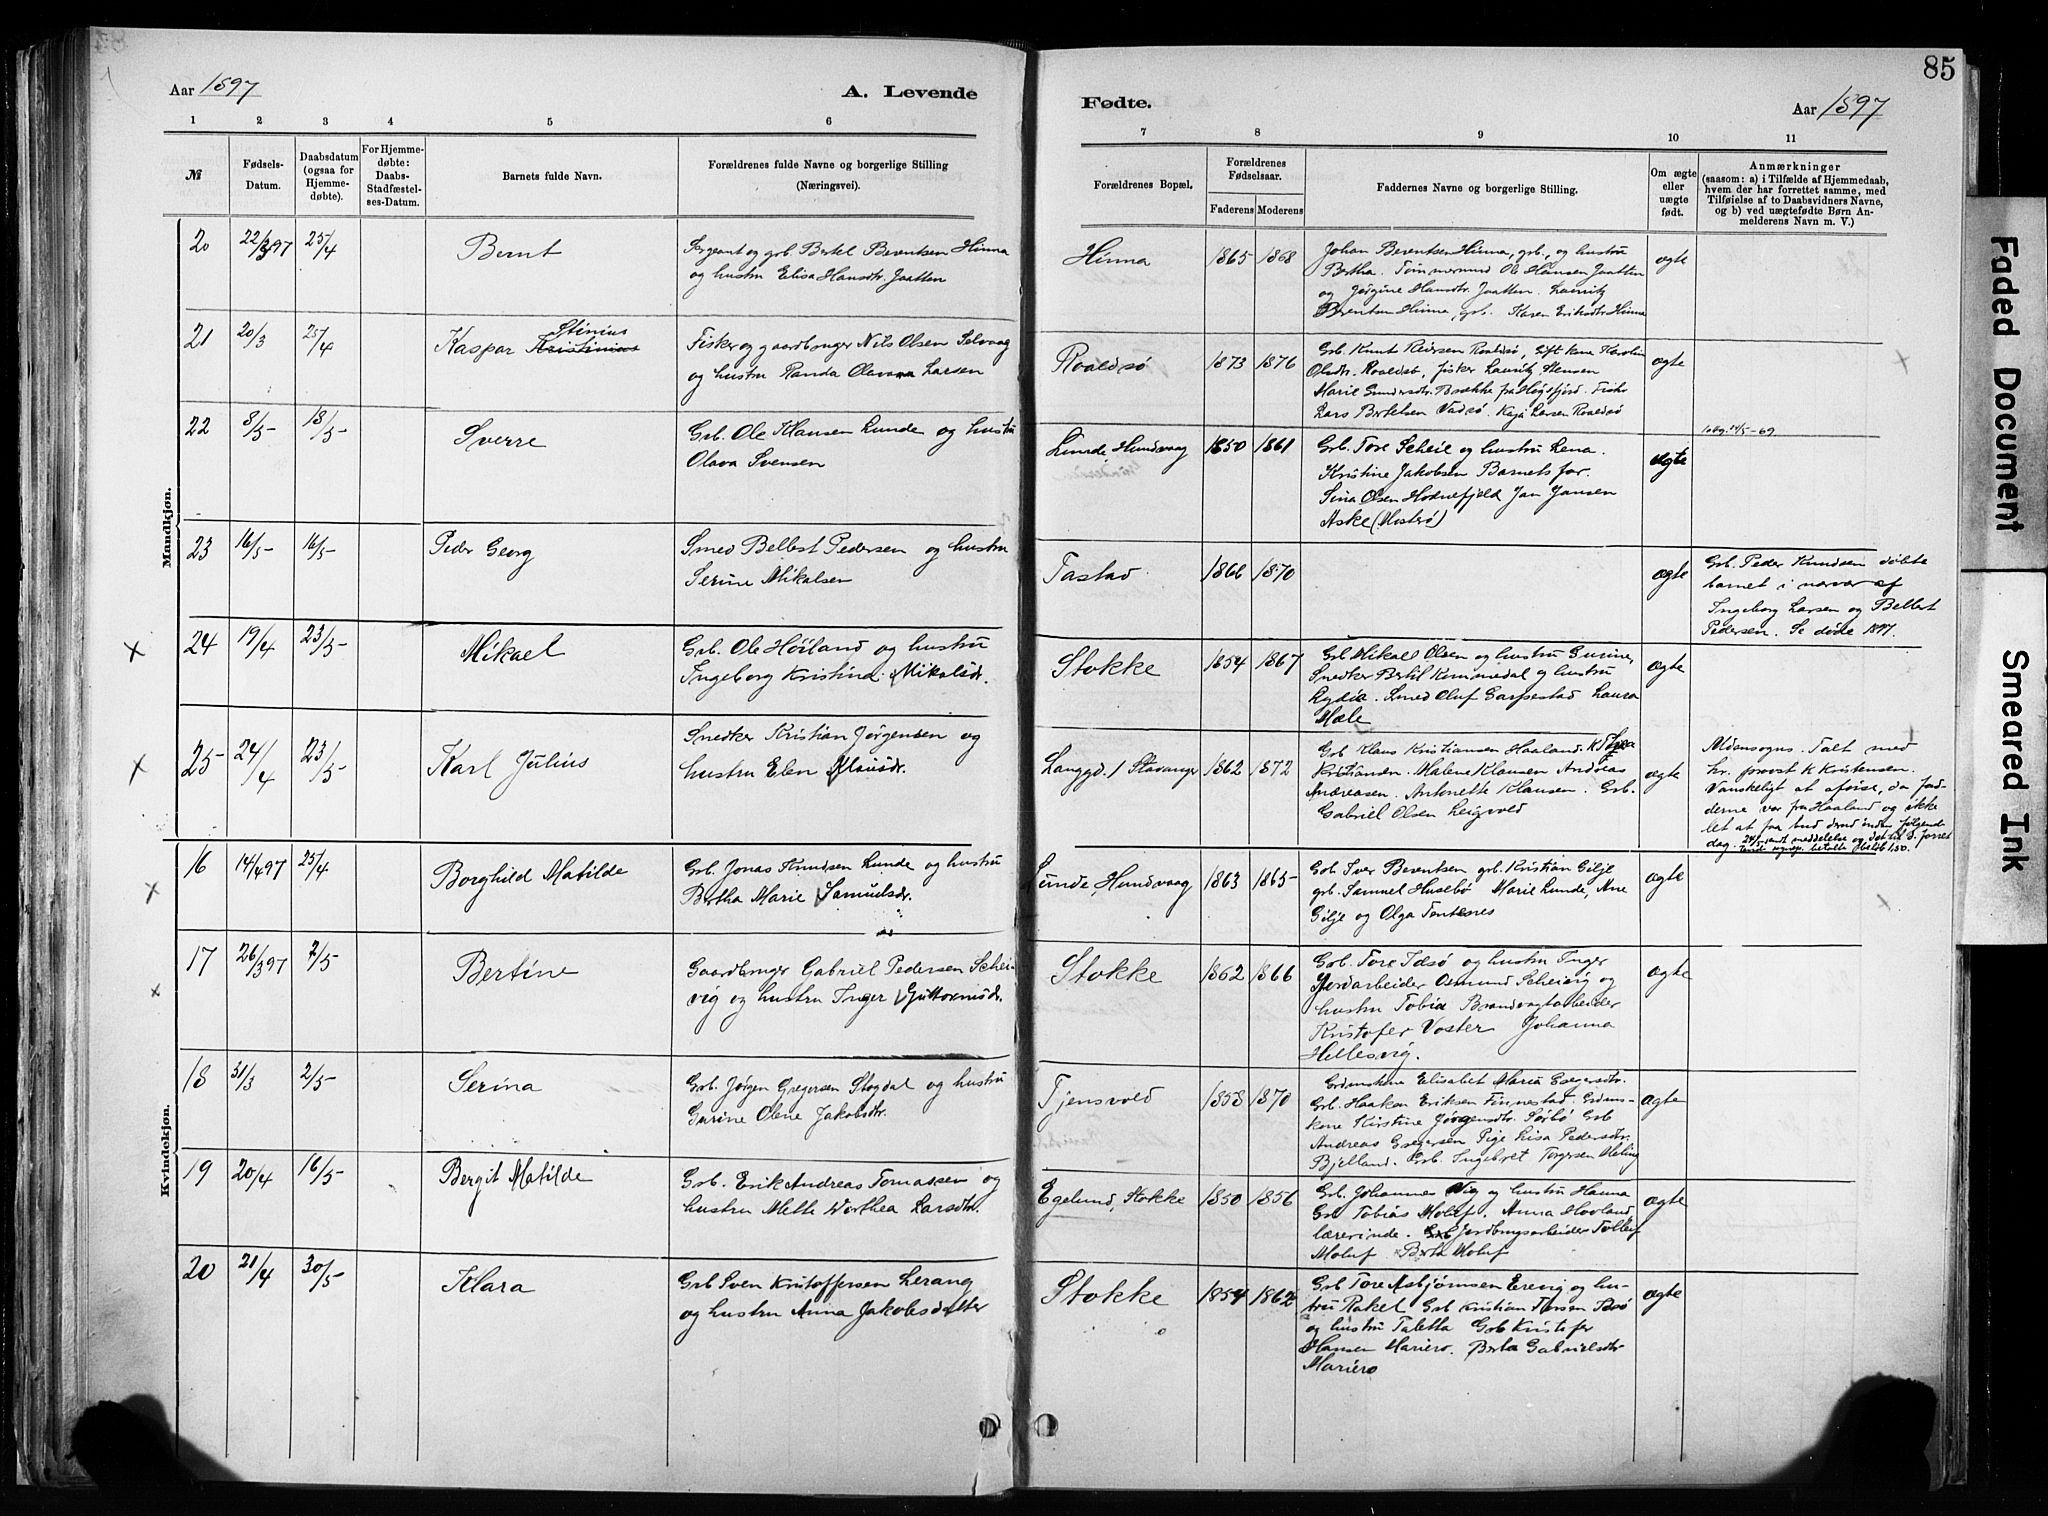 85
Aar 1897
A. Levende
Fødte.
Aar 1897
1 2 3 4 5 6 7 8 9 10 11
№
Fødsels-
Datum.
Daabsdatum
(ogsaa for
Hjemme-
døbte).
For Hjemme-
døbte:
Daabs-
Stadfæstel-
ses-Datum.
Barnets fulde Navn.
Forældrenes fulde Navne og borgerlige Stilling
(Næringsvei).
Forældrenes Bopæl.
Forældrenes
Fødselsaar.
Faderens Moderens
Faddernes Navne og borgerlige Stilling.
Om ægte
eller
uægte
født.
Anmærkninger
(saasom: a) i Tilfælde af Hjemmedaab,
hvem der har forrettet samme, med
Tilføielse af to Daabsvidners Navne,
og b) ved uægtefødte Børn An-
melderens Navn m. V.)
Mandkjøn.
20 22/3 97 25/4
Bernt
Sergeant og grb. Bertel Berentsen Hinna
og hustru Elisa Hansdtr. Jaatten
Hinna
1865 1868
Johan Berentsen Hinna, grb., og hustru
Bertha. Tømmermand Ole Hansen Jaatten
og Jørgine Hansdtr. Jaatten. Lauritz
Berentsen Hinna, grb. Karen Eriksdtr. Hinna
ægte
21 20/3 25/4
Stinius
Kaspar Kristinius
Fisker og gaardbruger Nils Olsen Selvaag
og hustru Randa Olava Larsen
Roaldsø
1873 1876
Grb. Knut Reiersen Roaldsø, Gift kone Karolin
Olsdtr. Roaldsø, fisker Lauritz Stensen
Marie Gundersdtr. Brække fra Høgsfjord. Fisker
Lars Bertelsen Vadsø. Kaja Larsen Roaldsø
ægte
22 8/5 18/5
Sverre
Grb. Ole Klausen Lunde og hustru
Olava Svensen
Lunde, Hundvaag
1850 1861
Grb. Tore Scheie og hustru Lena.
Kristine Jakobsen Barnets far.
Sina Olsen Hodnefjeld Jan Jansen
Aske (Mosterø)
ægte
23 16/5 16/5
Peder Georg
Smed Bellest Pedersen og hustru
Serine Mikalsen
Tastad
1866 1870
ægte
Grb. Peder Knudsen døbte
barnet i nærvær af
Ingeborg Larsen og Bellest
Pedersen. Se døde 1897.
24 19/4 23/5
Mikael
Grb. Ole Høiland og hustru
Ingeborg Kristina Mikalsdr.
Stokke
1854 1867
Grb Mikael Olsen og hustru Gurine,
Snedker Bertil Kimmedal og hustru
Lydia. Smed Oluf Garpestad Laura
Mæle
ægte
25 24/4 23/5
Karl Julius
Snedker Kristian Jørgensen og
hustru Elen Klausdr.
Langgd. / Stavanger
1862 1872
Grb Klaus Kristiansen Haaland.
Kristiansen. Malene Klausen Andreas
Andreasen. Antonette Klausen. Grb.
Gabriel Olsen Leigvold
ægte
Udensogns. Talt med
hr. provst K Kristensen.
Vanskeligt at afvise, da fad-
derne var fra Haaland og ikke
let at faa bud derud inden følgende
dag.
Kvindekjøn.
16 14/4 97 25/4
Borghild Matilde
Grb. Jonas Knudsen Lunde og hustru
Bertha Marie Samuelsdr.
Lunde, Hundvaag
1863 1865
Grb Iver Berentsen grb. Kristian Gilje
grb. Samuel Husebø Marie Lunde, Ane
Gilje og Olga Tentesnes
ægte
17 26/3 97 2/5
Bertine
Gaardbruger Gabriel Pedersen Schei-
vig og hustru Inger Guttormsdr.
Stokke
1862 1866
Grb. Tore Tæsø og hustru Inger
Jordarbeider Osmund Scheivig og
hustru Tobia Brandvagtarbeider
Kristofer Voster Johanna
Hillesvig.
ægte
18 31/3 2/5
Serina
Grb. Jørgen Gregersen Stogdal og hustru
Gurine Olene Jakobsdtr.
Tjensvold
1858 1870
Grdmskone Elisabet Maria Gregersdtr.
Grb. Haakon Eriksen Finnestad. Grdms-
kone Kirstine Jørgensdtr. Sørbø Grb
Andreas Gregersen Pige Lisa Pedersdtr.
Bjelland. Grb. Ingebret Torgersen Meling
ægte
19 20/4 16/5
Bergit Matilde
Grb. Erik Andreas Tomassen og
hustru Mette Dorthea Larsdtr.
Egelund, Stokke
1850 1856
Grb. Johannes Vig og hustru Hanna
Grb Tobias Moluf. Anna Hovland,
lærerinde. Jordbrugsarbeider Tollef
Moluf Berta Moluf
ægte
20 21/4 30/5
Klara
Grb Sven Kristoffersen Lerang
og hustru Anna Jakobsdatter
Stokke
1854 1862
Grb Tore Asbjørnsen Erevig og hu-
stru Rakel Grb Kristian Torsen Tæsø
og hustru Taletta Grb Kristofer
Hansen Mariero. Berta Gabrielsdtr
Mariero
ægte
Faded Document
Smeared Ink